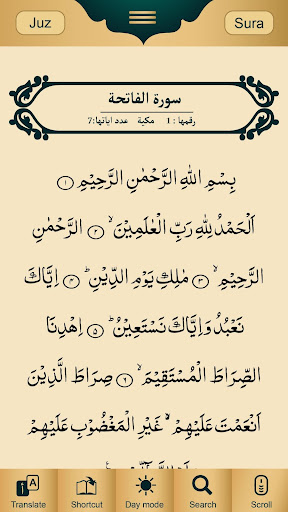 Juz
Sura
سورة الفاتحة
رقمها : 1 مكية عدد اياتها:7
بِسْمِ اللهِ الرَّحْمٰنِ الرَّحِيْمِ ۝١
اَلْحَمْدُ لِلّٰهِ رَبِّ الْعٰلَمِيْنَ ۙ ۝٢ الرَّحْمٰنِ
الرَّحِيْمِ ۙ ۝٣ مٰلِكِ يَوْمِ الدِّيْنِ ؕ ۝٤ اِيَّاكَ
نَعْبُدُ وَاِيَّاكَ نَسْتَعِيْنُ ؕ ۝٥ اِهْدِنَا
الصِّرَاطَ الْمُسْتَقِيْمَ ۙ ۝٦ صِرَاطَ الَّذِيْنَ
اَنْعَمْتَ عَلَيْهِمْ ۙ غَيْرِ الْمَغْضُوْبِ عَلَيْهِمْ
Translate
Shortcut
Day mode
Search
Scroll